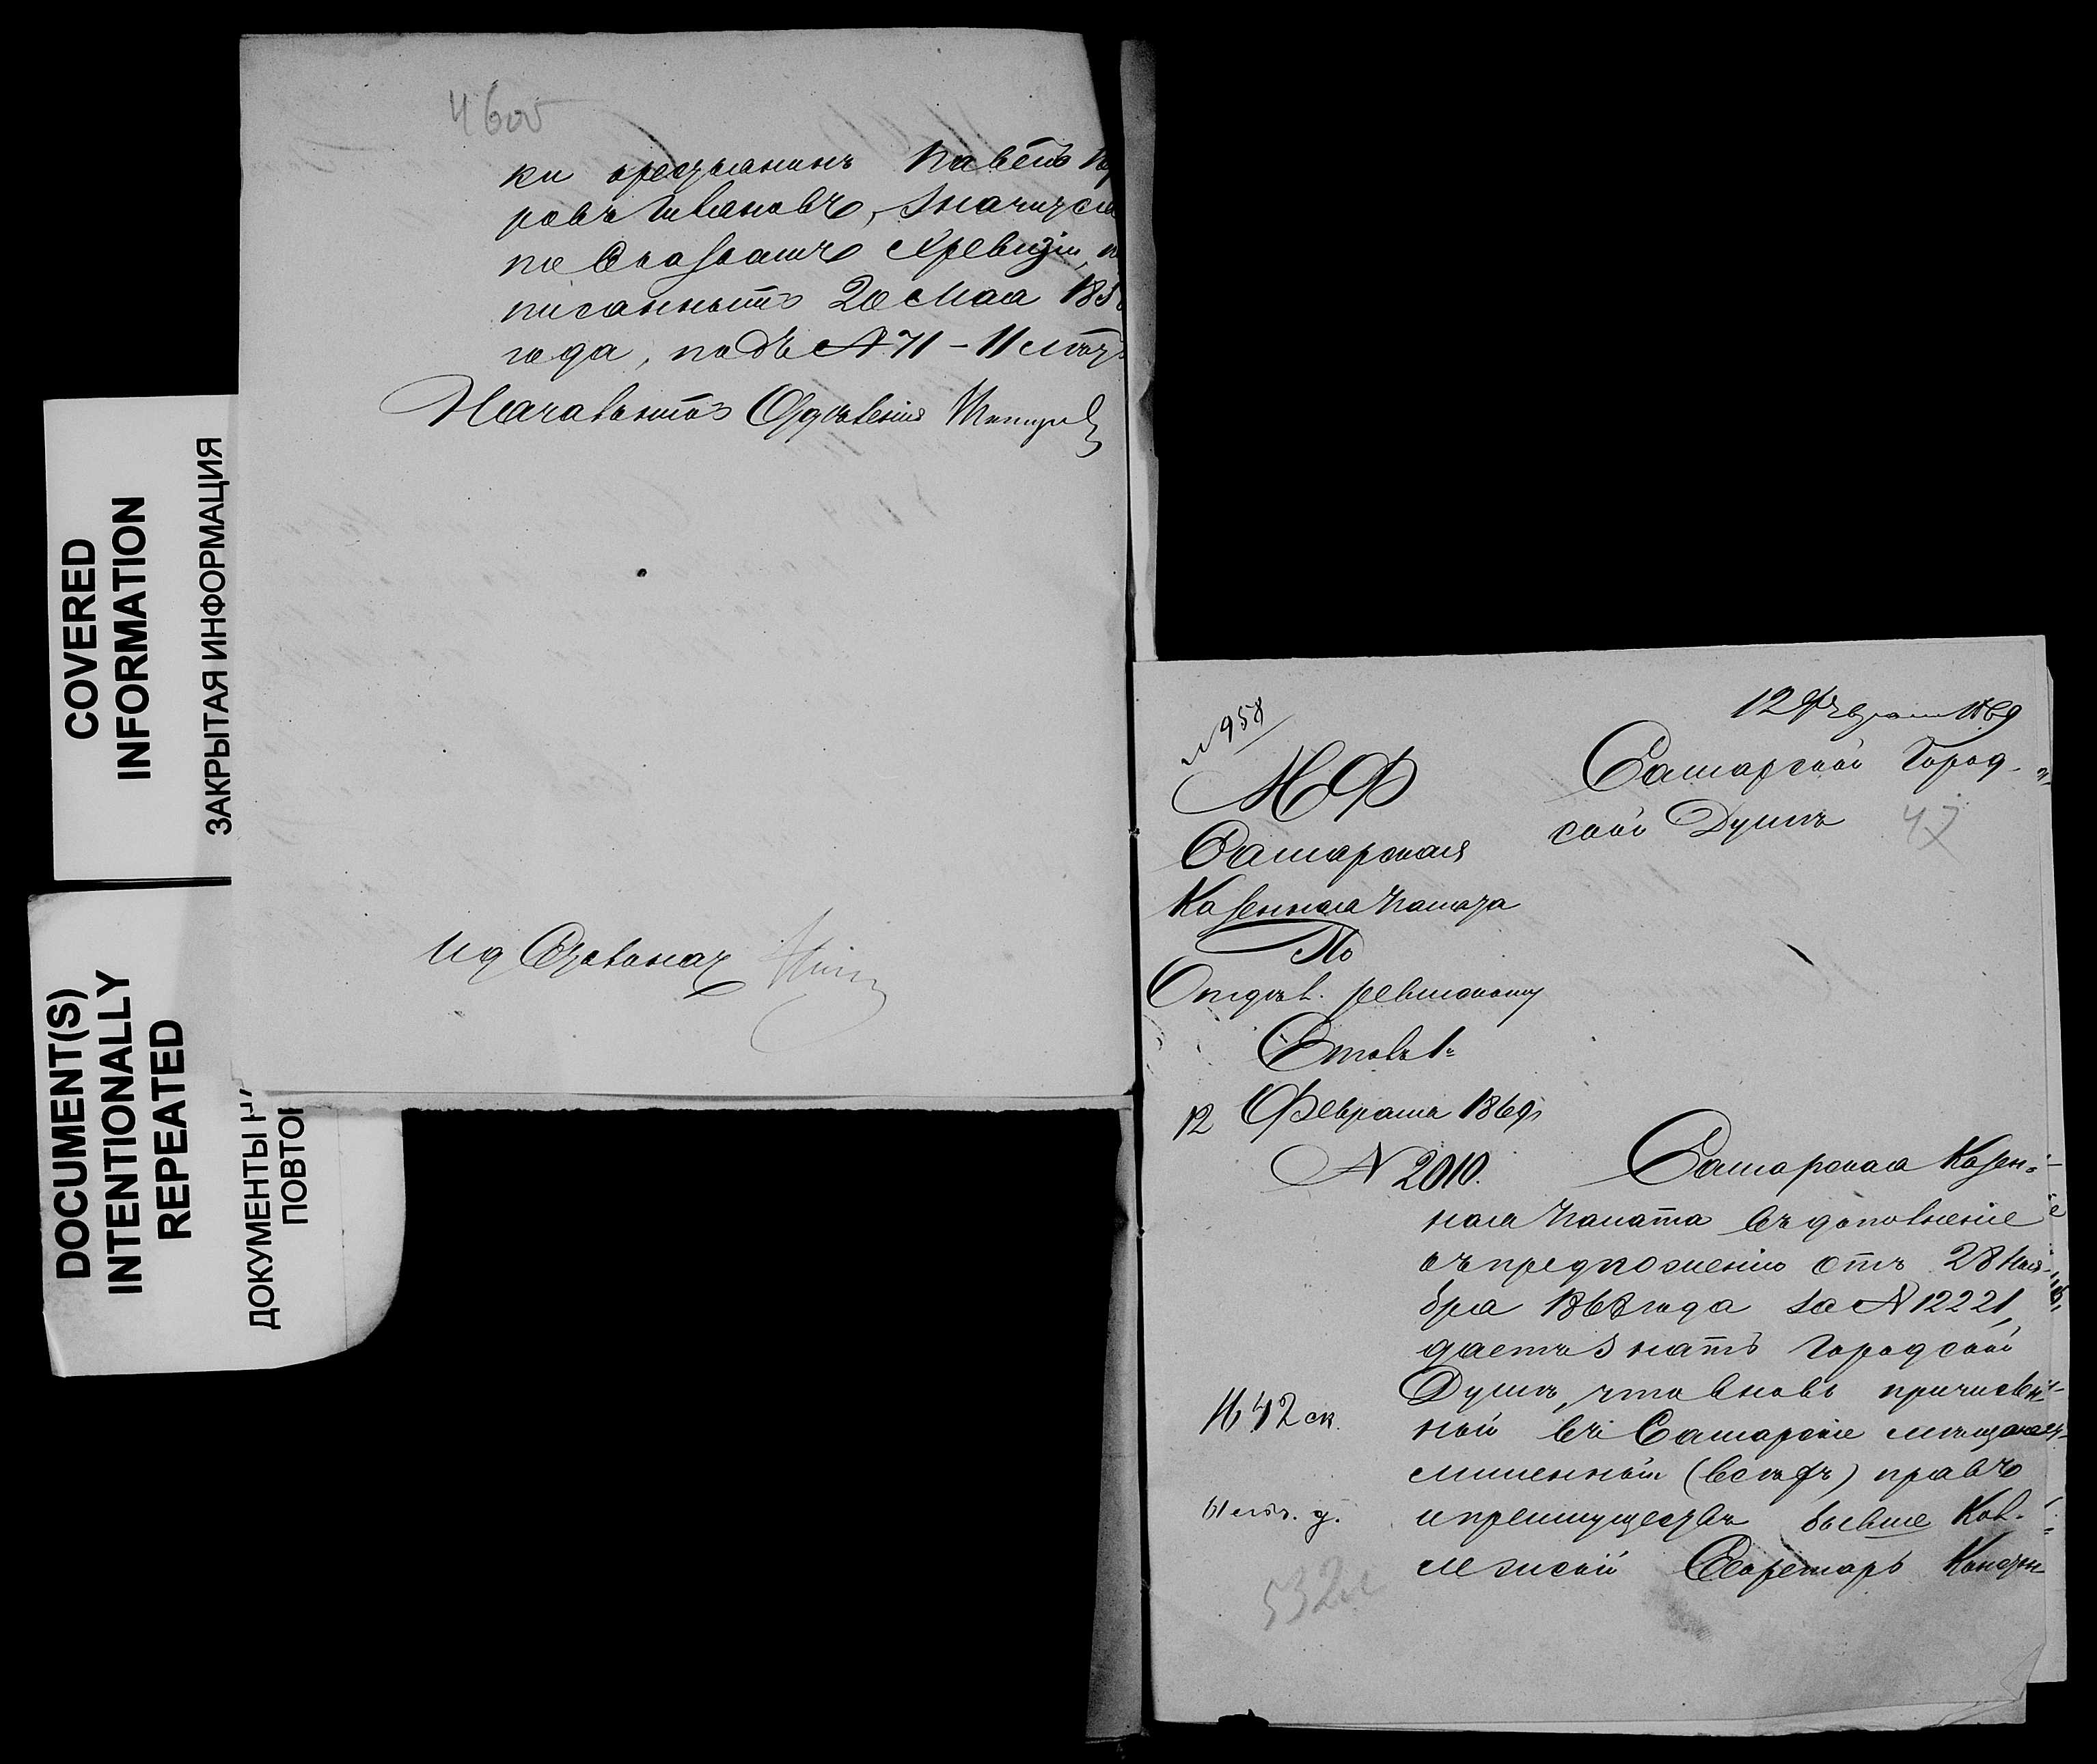 46 об
ки крестьянинъ Павелъ
ровъ Ивановъ, значится
по Сказкамъ Х ревизіи,
писаннымъ 20 Мая 185
года, подъ № 71 - 11 лѣтъ
Начальникъ Отдѣленія
И д Столонач
COVERED
INFORMATION
ЗАКРЫТАЯ ИНФОРМАЦИЯ
DOCUMENT(S)
INTENTIONALLY
REPEATED
ДОКУМЕНТЫ
ПОВТО
№ 958
12 Февраля 1869
М Ф
Самарская
Казенная Палата
По
Отдѣл. ревизскому
Столъ 1
12 Февраля 1869 г
№ 2010.
Самарской Город-
ской Думѣ
47
Самарская Казен-
ная Палата въ дополненіе
къ предложенію отъ 28 Ноя-
бря 1868 года за № 12221,
даетъ знать Городской
Думѣ, что вновь причислен-
ный въ Самарскіе мѣщане
лишенный (всѣхъ) правъ
и преимуществъ бывше Кол-
лежскій Секретарь
№ 42 ск.
532